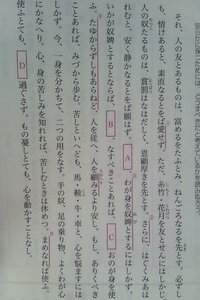 それ、人の友とあるものは、富めるをたふとみ、ねんごろなるを先とす。必ず
も、情けあると、素直なるとをば愛せず。ただ、糸竹・花月を友とせんにはしかじ
人の奴たるものは、賞罰はなはだしく、恩顧厚きを先とす。さらに、はぐくみあは
れむと、安く静かなるとをば願はず。ただ、 A わが身を奴婢とするにはしかず。
いかが奴婢とするとならば、 B 、なすべきことあれば、 C おのが身を使
ふ。たゆからずしもあらねど、人を従へ、人を顧みるより安し。もし、ありくべき
ことあれば、みづから歩む。苦しといへども、馬・鞍・牛・車と、心を悩ますには
しかず。今、一身を分かちて、二つの用をなす。手の奴、足の乗り物、よくわが心
にかなへり。心、身の苦しみを知れれば、苦しむときは休めつ、まめなれば使ふ。
使ふとても、 D 過ぐさず。もの憂しとても、心を動かすことなし。